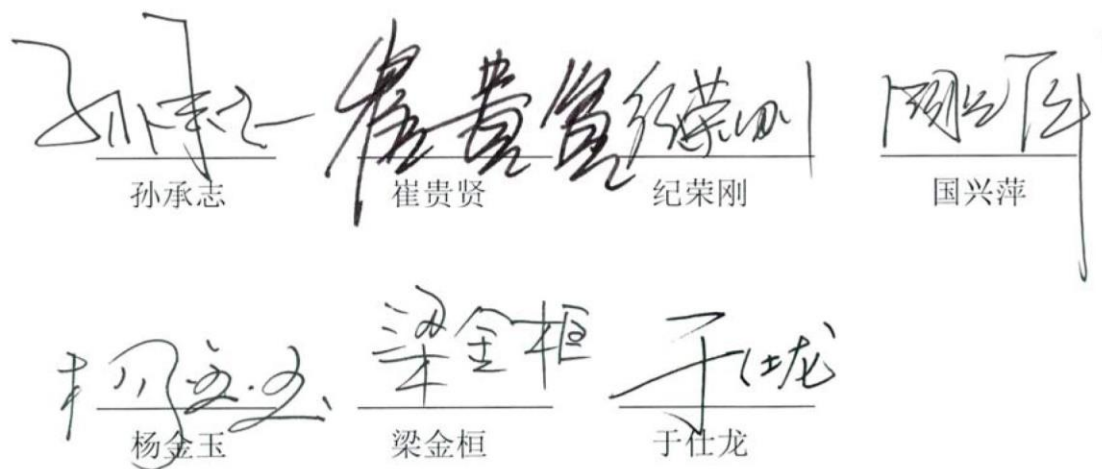 孙承志 崔贵贤 纪荣刚 国兴萍
孙承志 崔贵贤 纪荣刚 国兴萍
杨金玉 梁金桓 于仕龙
杨金玉 梁金桓 于仕龙